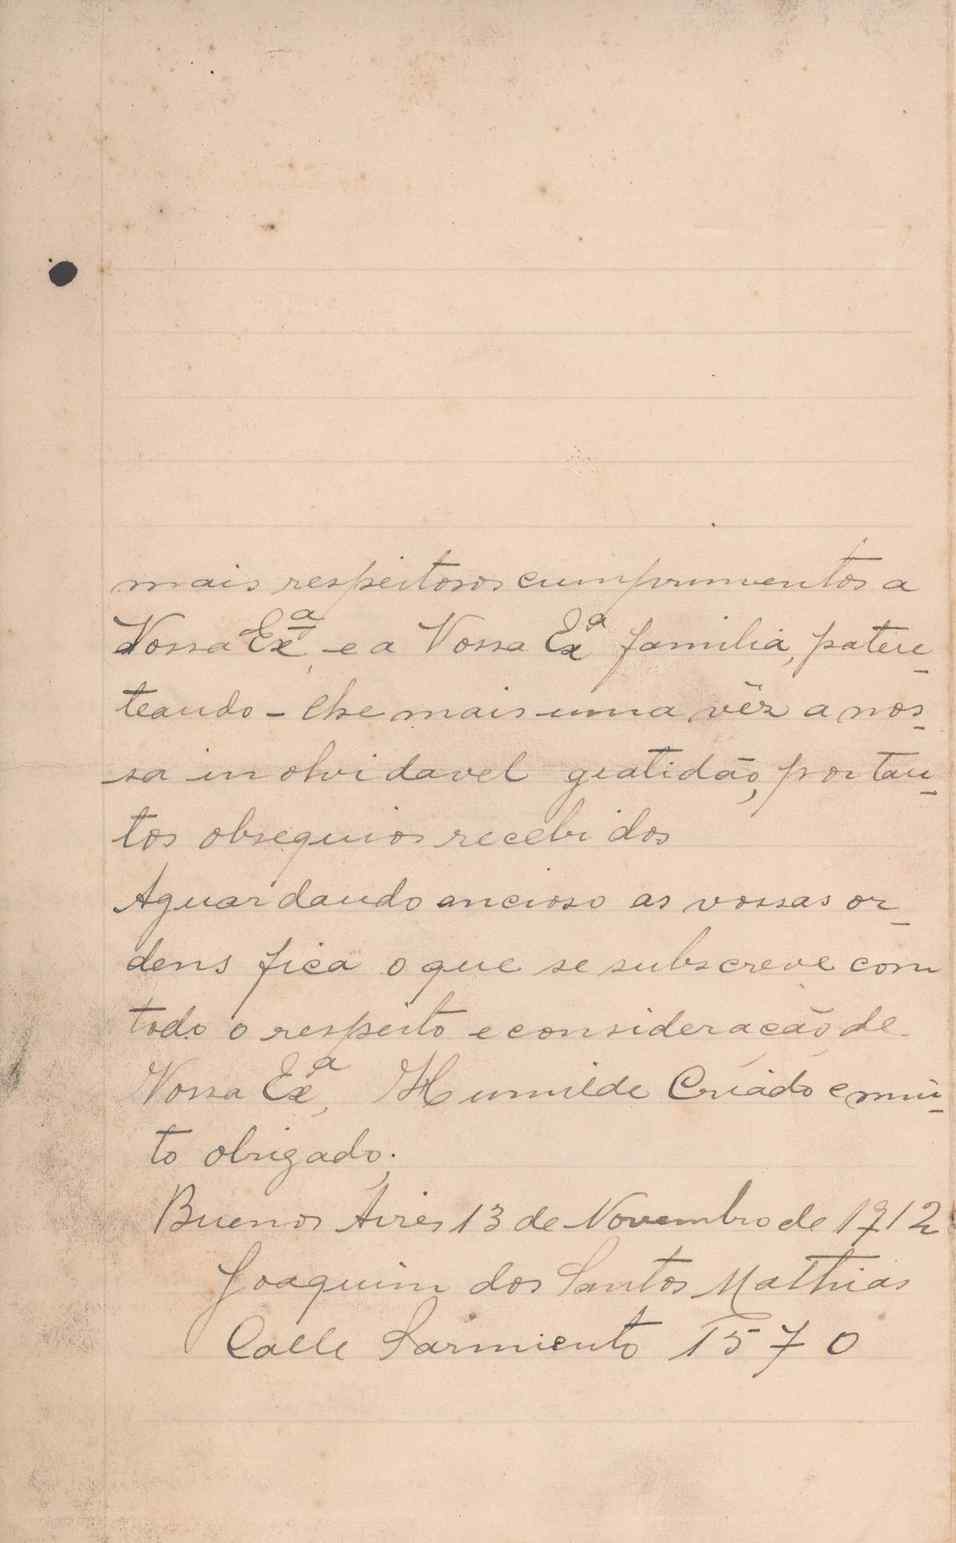 mais respeitosos cumprimentos a
Vossa Exª, e a Vossa Exª familia, paten-
teando-lhe mais uma vêz a nos-
sa inolvidavel gratidão, por tan-
tos obsequios recebidos
Aguardando ancioso as vossas or-
dens fica o que se subscreve com
todo o respeito e consideração de
Vossa Exª, Humilde Criado e mui-
to obrigado;
Buenos Aires 13 de Novembro de 1912
Joaquim dos Santos Mathias
Calle Sarmiento 1570